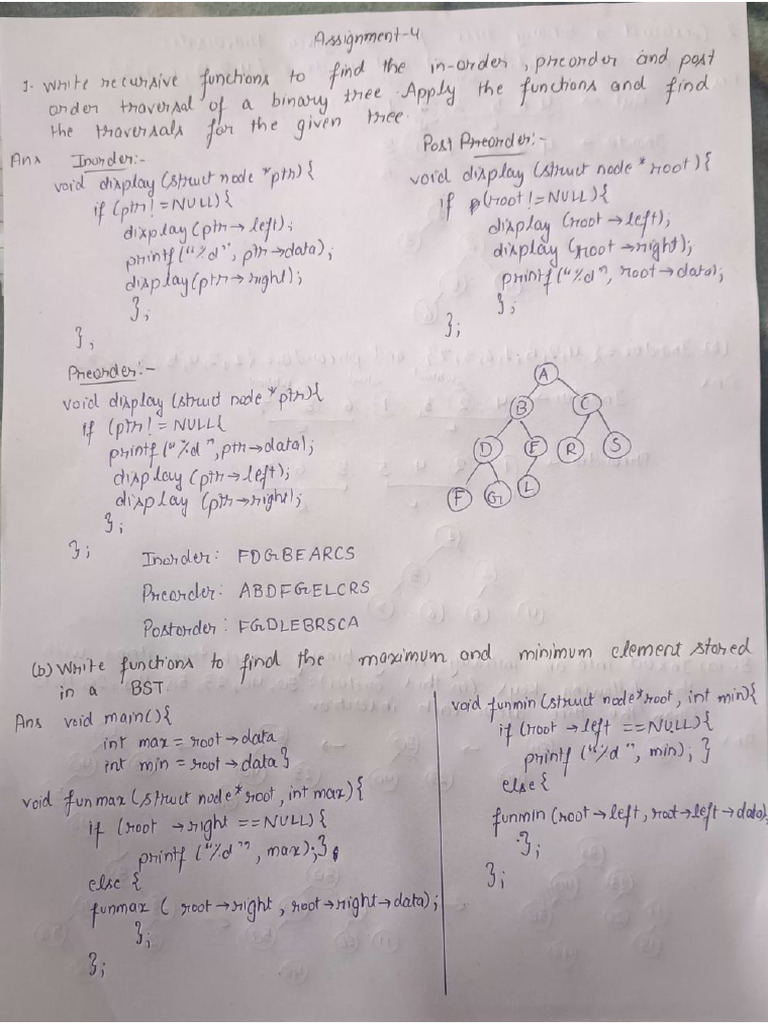 Assignment-4
1. Write recursive functions to find the in-order, preorder and post
order traversal of a binary tree. Apply the functions and find
the traversals for the given tree.
Ans Inorder:-
void display (struct node *ptr) {
if (ptr != NULL) {
display (ptr → left);
printf ("%d", ptr → data);
display (ptr → right);
};
};
Post Preorder:-
void display (struct node * root) {
if (root != NULL) {
display (root → left);
display (root → right);
printf ("%d", root → data);
};
};
Preorder:-
void display (struct node *ptr) {
if (ptr != NULL {
printf ("%d", ptr → data);
display (ptr → left);
display (ptr → right);
};
};
A
B C
D E R S
F G L
Inorder: FDGBEARCS
Preorder: ABDFGELCRS
Postorder: FGDLEBRSCA
(b) Write functions to find the maximum and minimum element stored
in a BST.
Ans void main() {
int max = root → data
int min = root → data }
void funmax (struct node* root, int max) {
if (root → right == NULL) {
printf ("%d", max); };
else {
funmax ( root → right, root → right → data);
};
};
void funmin (struct node* root, int min) {
if (root → left == NULL) {
printf ("%d", min); }
else {
funmin (root → left, root → left → data)
};
};